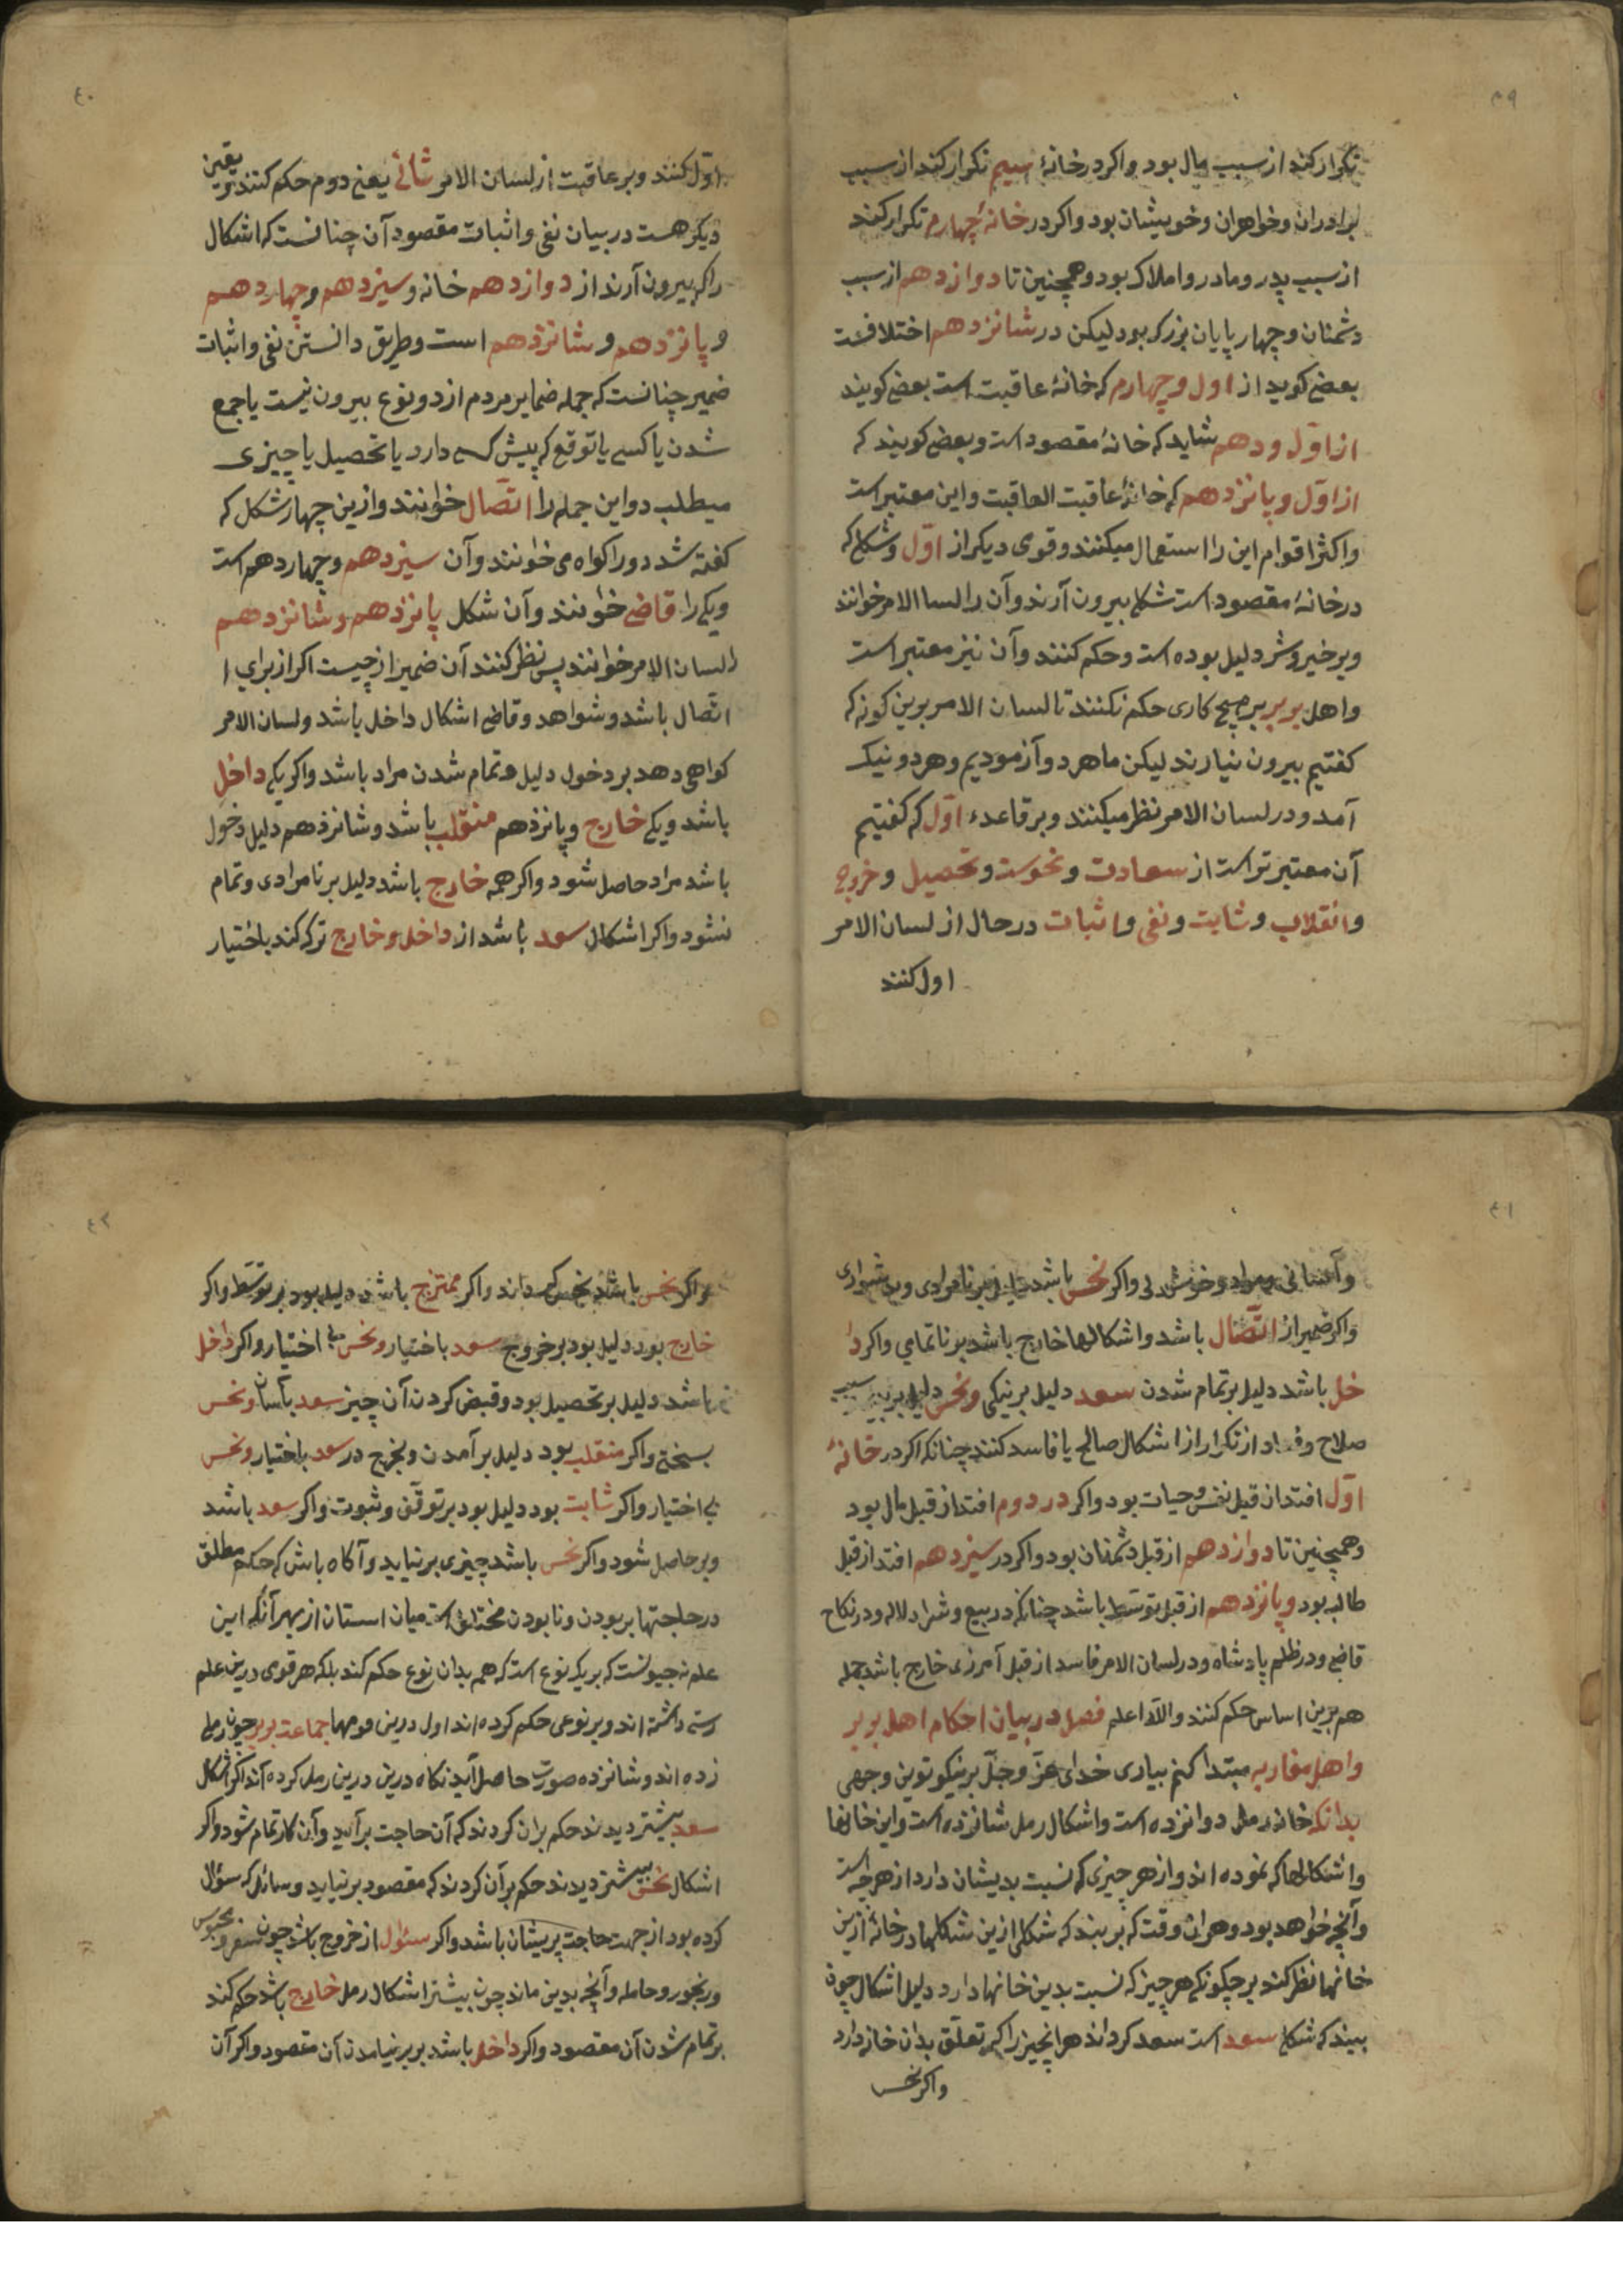 ۳۹
تکرار کند از سبب مال بود واکر در خانهٔ سیم تکرار کند از سبب
برادران وخواهران وخویشان بود واکر در خانهٔ چهارم تکرار کند
از سبب پدر ومادر واملاک بود وهمچنین تا دوازدهم از سبب
دشمنان وچهار پایان بزرک بود لیکن در شانزدهم اختلافست
بعضی کوید از اول وچهارم که خانهٔ عاقبت است بعضی کویند
از اوّل ودهم شاید که خانهٔ مقصود است وبعضی کویند که
از اوّل وپانزدهم که خانهٔ عاقبت العاقبت واین معتبر است
واکثر اقوام این را استعمال میکنند وقومی دیکر از اوّل وشکلی که
در خانهٔ مقصود است شکلی بیرون آرند وآن را لسا الامر خوانند
وبر خیر وشر دلیل بوده است وحکم کنند وآن نیز معتبر است
واهل بربر بر هیچ کاری حکم نکنند تا لسان الامر برین کونه که
کفتیم بیرون نیارند لیکن ما هر دو آزمودیم وهر دو نیک
آمد ودر لسان الامر نظر میکنند وبر قاعدهٔ اوّل که کفتیم
آن معتبر تر است از سعادت ونحوست وتحصیل وخروج
وانقلاب وثابت ونفی واثبات در حال از لسان الامر
اول کنند
۴۰
اوّل کنند وبر عاقبت از لسان الامر ثانی یعنی دوم حکم کنند یقین
دیکر هست در بیان نفی واثبات مقصود آن چنانست که اشکال
را که بیرون آرند از دوازدهم خانه وسیزدهم وچهاردهم
و پانزدهم و شانزدهم است وطریق دانستن نفی واثبات
ضمیر چنانست که جمله ضمایر مردم از دو نوع بیرون نیست یا جمع
شدن یا کسی یا توقع که پیش کسی دارد یا تحصیل یا چیزی
میطلبد واین جمله را اتّصال خوانند وازین چهار شکل که
کفته شد دو را کواه می خوانند وآن سیزدهم وچهاردهم است
ویکی را قاضی خوانند وآن شکل پانزدهم وشانزدهم
را لسان الامر خوانند پس نظر کنند آن ضمیر از چیست اکر از برای ا
اتصال باشد وشواهد وقاضی اشکال داخل باشد ولسان الامر
کواهی دهد بر دخول دلیل وتمام شدن مراد باشد واکر یکی داخل
باشد ویکی خارج وپانزدهم منقلب باشد وشانزدهم دلیل دخول
باشد مراد حاصل شود واکر همه خارج باشد دلیل بر نامرادی وتمام
نشود واکر اشکال سعد باشد از داخل وخارج ترک کند باختیار
۴۱
وآسانی ومراد وخوش دلی واکر نحس باشد دلیل بر نامرادی وبدشواری
واکر ضمیر از اتّصال باشد واشکالها خارج باشد بر ناتمامی واکر دا
خل باشد دلیل بر تمام شدن سعد دلیل بر نیکی ونحس دلیل بر سبب
صلاح وفساد از تکرار از اشکال صالح یا فاسد کنند چنانکه اکر در خانهٔ
اوّل افتد از قبل نفس وحیات بود واکر در دوم افتد از قبل مال بود
وهمچنین تا دوازدهم از قبل دشمنان بود واکر در سیزدهم افتد از قبل
طالب بود وپانزدهم از قبل توسّط باشد چنانکه در بیع وشرا دلاله ودر نکاح
قاضی ودر ظلم پادشاه ودر لسان الامر فاسد از قبل آمرزی خارج باشد جمله
هم برین اساس حکم کنند والله اعلم فصل در بیان احکام اهل بربر
واهل مغاربه مبتدا کنم بیاری خدای عزّ وجلّ بر نیکوتوین وجهی
بدانکه خانه رمل دوانزده است واشکال رمل شانزده است واین خانها
واشکالها که نموده اند واز هر چیزی که نسبت بدیشان دارد از هر چه است
وآنچه خواهد بود وهران وقت که بر بیند که شکلی ازین شکلها در خانهٔ ازین
خانها نظر کند بر چکونکی هر چیز که نسبت بدین خانها دارد دلیل اشکال چون
بیند که شکل سعد است سعد کرداند هرانچیز را که تعلّق بدان خانه دارد
واکر نحس
۴۲
واکر نحس باشد نحس کرداند واکر ممتزج باشد دلیل بود بر توسّط واکر
خارج بود دلیل بود بر خروج سعد باختیار ونحس بی اختیار واکر داخل
باشد دلیل بر تحصیل بود وقبض کردن آن چیز سعد بآسانی ونحس
بسختی واکر منقلب بود دلیل بر آمدن وبخرج در سعد باختیار ونحس
بی اختیار واکر ثابت بود دلیل بود بر توقّف وثبوت واکر سعد باشد
وبر حاصل شود واکر نحس باشد چیزی بر نیاید وآکاه باش که حکم مطلق
در حاجتها بر بودن ونابودن مختلفست میان استان از بهر آنکه این
علم نه جیونست که بر یک نوع است که همه بدان نوع حکم کند بلکه هر قومی درین علم
رسمی داشته اند وبر نوعی حکم کرده اند اول درین قومها جماعت بربر چون رملی
زده اند وشانزده صورت حاصل آید نکاه درین درین رمل کرده اند اکر اشکال
سعد بیشتر دیدند حکم بران کردند که آن حاجت برآید وآن کار تمام شود واکر
اشکال نحس بیشتر دیدند حکم بر آن کردند که مقصود بر نیاید وسائل که سؤال
کرده بود از جهت حاجت پریشان باشد واکر سئوال از خروج باشد چون سفر ومحبوس
ورنجور وحامله وآنچه بدین ماند چون بیشتر اشکال رمل خارج باشد حکم کند
بر تمام شدن آن مقصود واکر داخل باشد بر بر نیامدن آن مقصود واکر آن